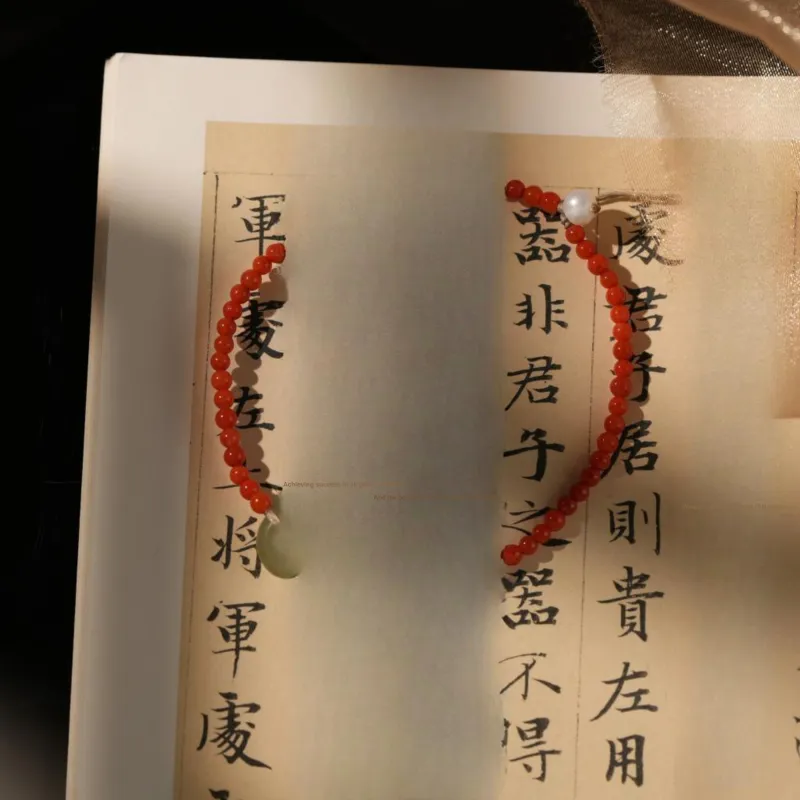 處君子居則貴左用
器非君子之器不得
軍處左上將軍處
Achieving